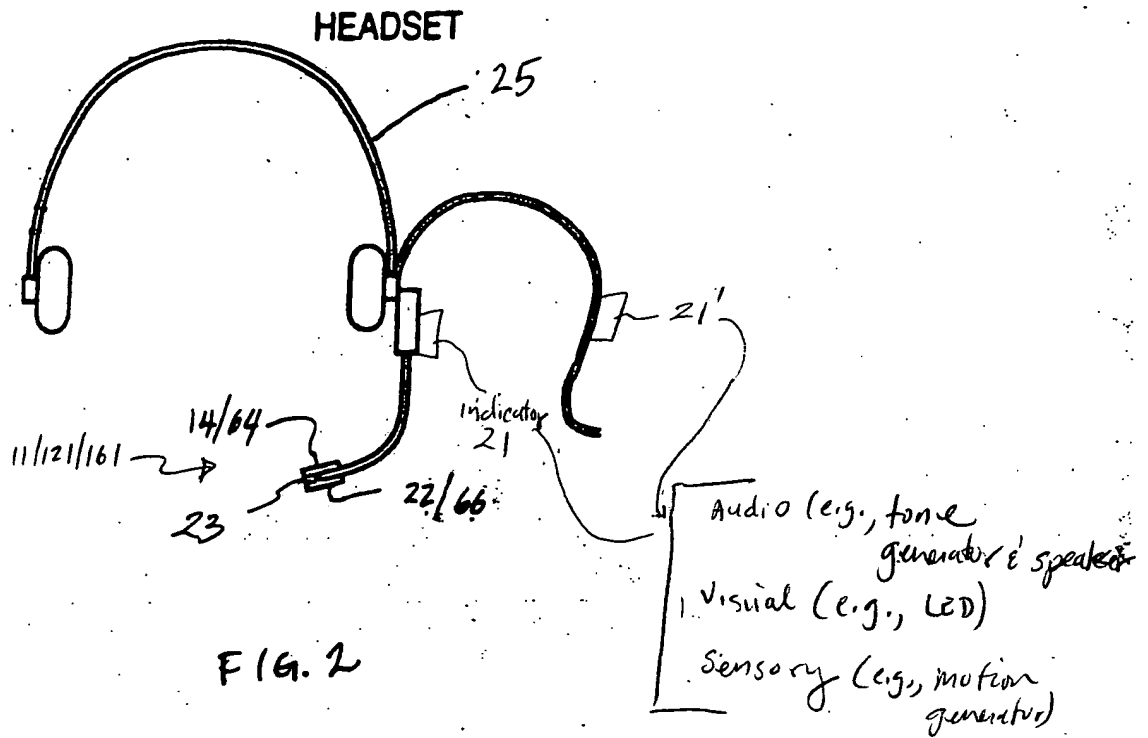 HEADSET
25
21'
indicator
21
14/64
11/121/161
22/66
23
Audio (e.g., tone
generator & speaker
Visual (e.g., LED)
Sensory (e.g., motion
generator)
FIG. 2